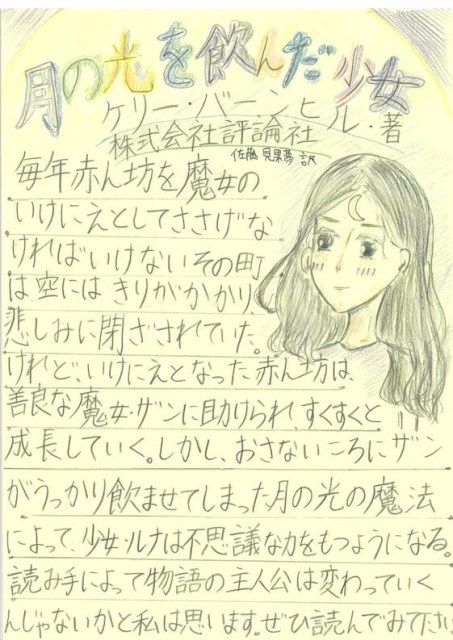 月の光を飲んだ少女
ケリー・バーンヒル・著
株式会社評論社
佐藤見果夢 訳
毎年赤ん坊を魔女の
いけにえとしてささげな
ければいけないその町
は空にはきりがかかり、
悲しみに閉ざされていた。
けれど、いけにえとなった赤ん坊は、
善良な魔女・ザンに助けられ、すくすくと
成長していく。しかし、おさないころにザン
がうっかり飲ませてしまった月の光の魔法
によって、少女・ルナは不思議な力をもつようになる。
読み手によって物語の主人公は変わっていく
んじゃないかと私は思います。ぜひ読んでみてください